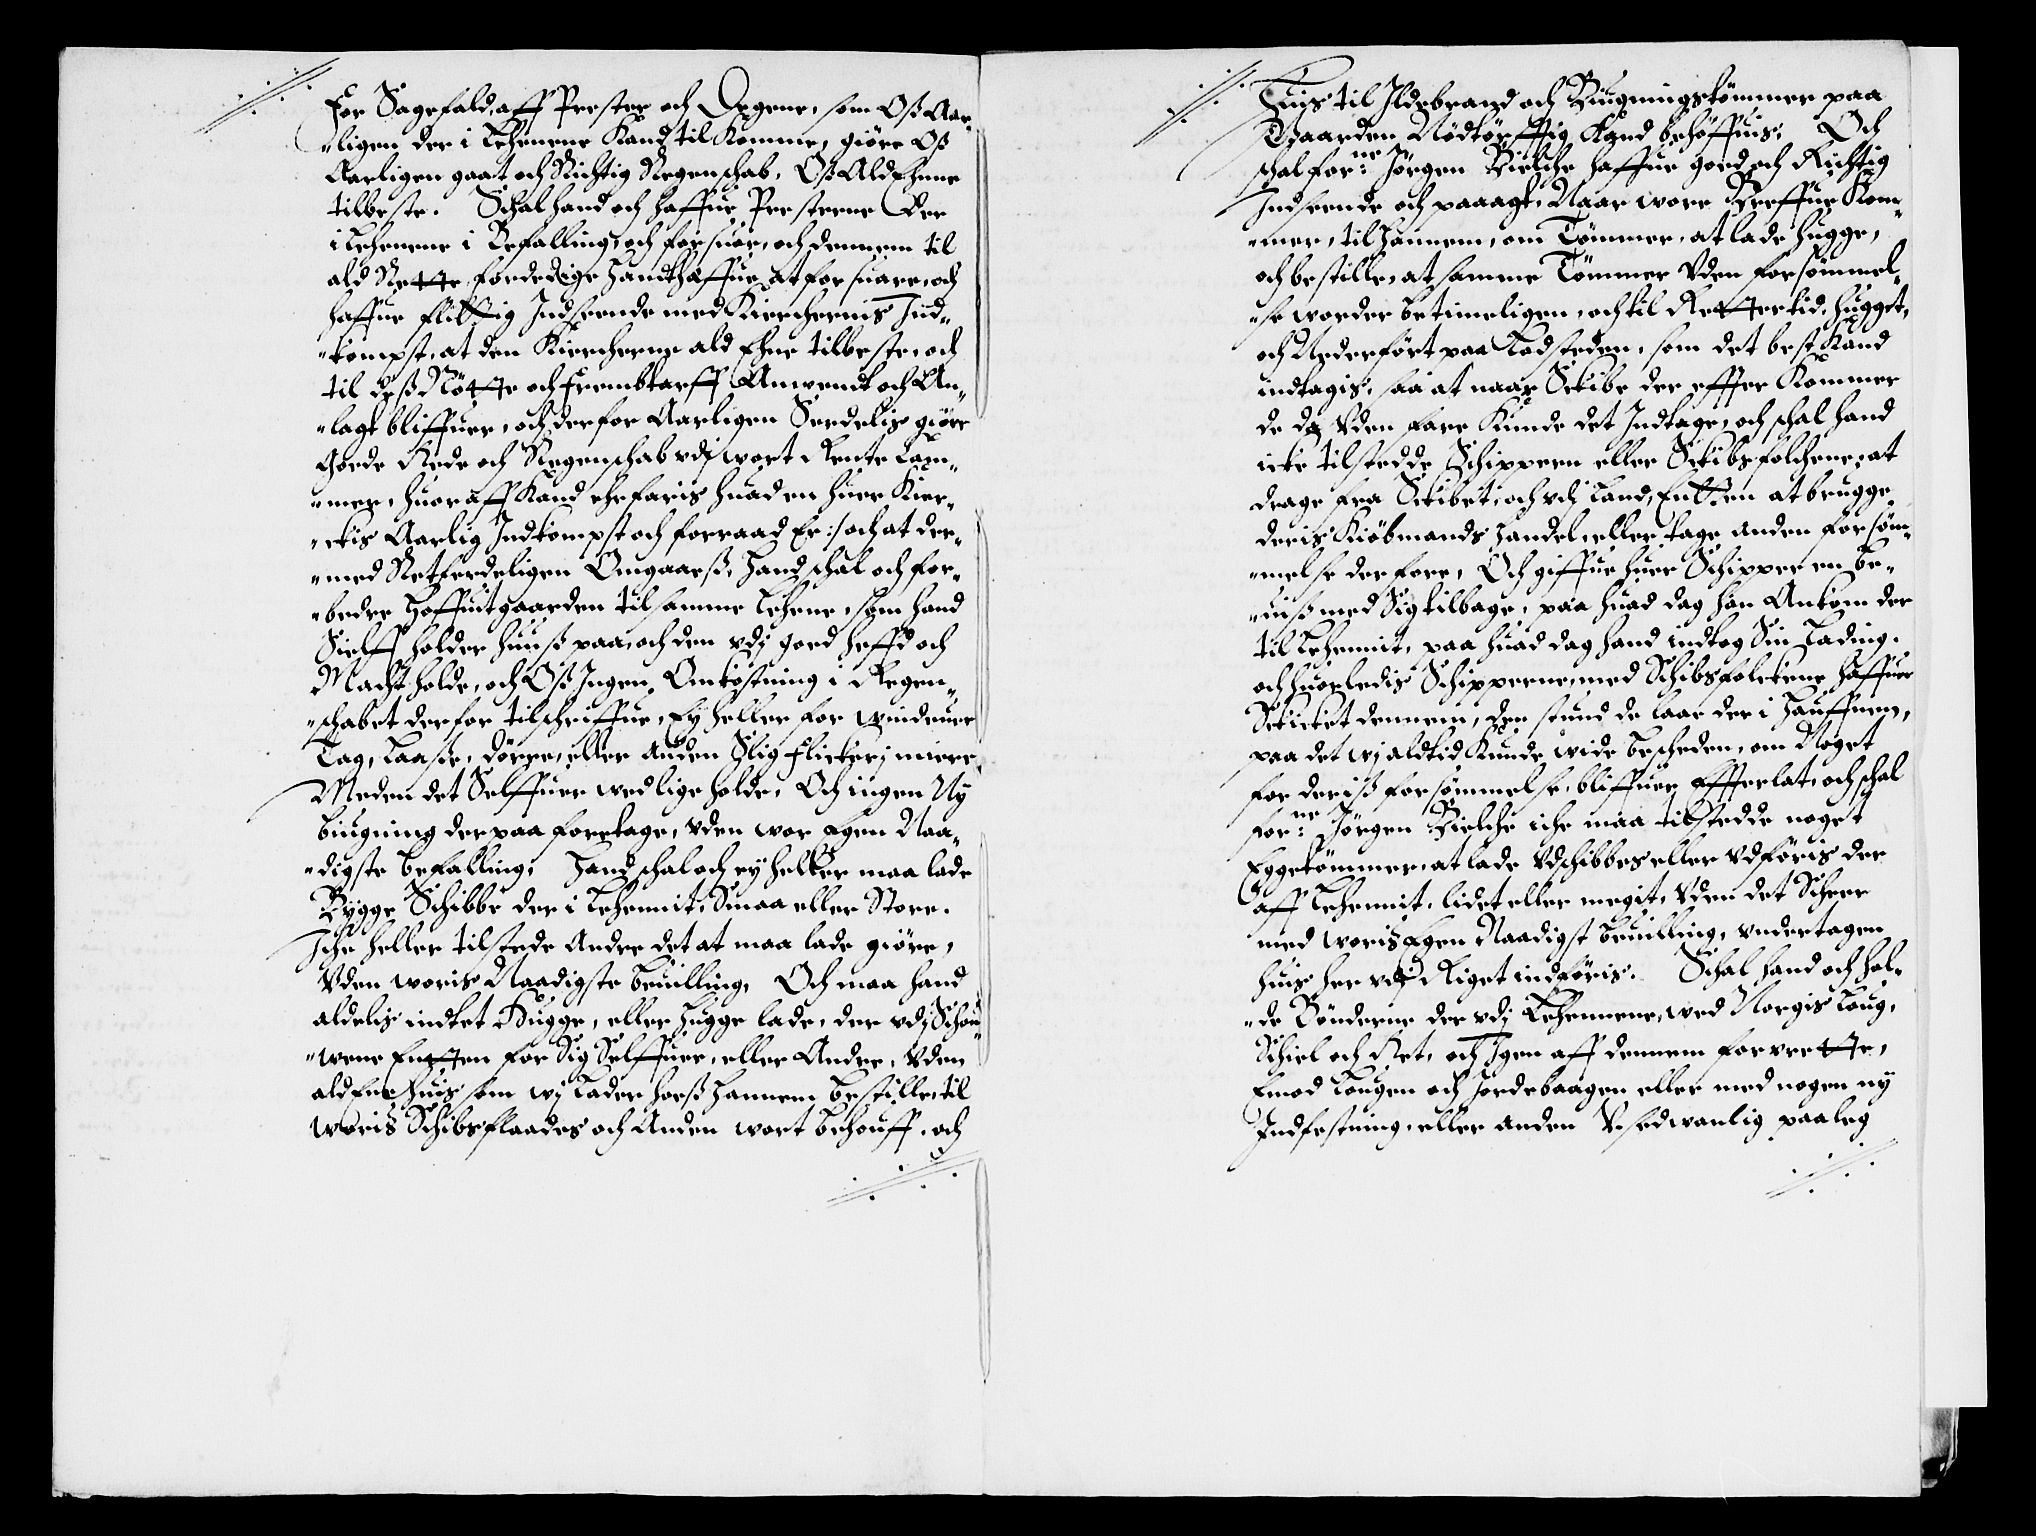 For Sagefald, aff Prester och Degene, som Oß Aar„
„ligen der i Lehenene Kand til Komme, giöre Oß
Aarligen gaat och Richtig Regenschab, Oß Ald Ehene
tilbeste. Schal hand och haffue Presterne Der
i Lehenene i Befalling, och forsuar, och dennem til
ald Rette fordedige Handthæffue at forsuare, och
haffue flittig Indseende med Kierchernis Ind„
„kompst, at den Kiercherne ald Ehne tilbeste, och
til deß Nötte och frembtarff Anwendt och An„
„lagt bliffuer, och derfor Aarligen Serdelis giöre
Goede Rede och Regenschab vdj wort Rente Cam„
„mer, huoraff Kand ehrfaris huad en huer Kier„
„ckis Aarlig Indkompst och forraad Er:/ och at der„
„med Retferdeligen Omgaarß, Hand schal och for„
„bedre Hoffuitgaarden til samme Lehene, som hand
Sielff holder huuß paa, och den vdj goed heffd och
Macht holde, och Oß Ingen Omkostning i Regen„
„schabet derfor tilschriffue, Ey heller for windeuer
Tag, Laaße, dörre, eller anden Slig flickerj miere
Meden det Selffuer wed lige holde, Och ingen Ny
biugning der paa foretage, vden wor egen Naa„
„digste befalling, Hand schal och ey heller maa lade
Bygge Schibbe der i Lehennit, Smaa eller Store.
Iche heller tilstede Andre det at maa lade giöre,
Vden woris Naadigste beuilling, Och maa hand
aldelis indtet Hugge, eller hugge lade, der vdj Schou„
„wene Entten for Sig Selffuer, eller Andre, Vden
ald Ene huis som wj Lader hoeß hannem bestille, til
woris Schibsflaades och Anden wort behouff, och
Huis til Ildebrand och Biugningstömmer paa
Gaarden Nödtörfftig Kand behöffuis, Och
schal for:ne Jörgen Bielche haffue goed och Richtig
Indseende och paaagt, Naar wore Breffue Kom„
„mer, til hannem, om Tömmer, at lade hugge,
och bestille, at samme Tömmer Vden forsömmel„
„se worder betimeligen, och til Retter tid, hugget,
och Nederfört paa Ladsteden, som det best Kand
indtagis, saa at naar Schibe der effter Kommer
de da Vden fare Kunde det Indtage, och schal hand
icke tilstedde Schippern eller Schibsfolchene, at
drage fra Schibet, och vdj Land, Entten at brugge
deris Kiöbmands handel, eller tage anden forsöm„
„melse derfore, Och giffue huer Schipper en be„
„uiß med Sig tilbage, paa huad dag han Ankom der
til Lehennit, paa huad dag hand indtog Sin Lading.
och huorledis Schipperne, med Schibsfolckene haffuer
Schicket dennem, den stund de laae der i Hauffnen,
paa det wj aldtid Kunde wide bescheden, om Noget
for deriß forsömmelse, bliffuer Effterlat, och schal
for:ne Jörgen Bielche iche maa tilstedde noget
Eggetömmer, at lade Vdschibbes eller Vdföris der
aff Lehennit, lidet eller megit, Vden det Scheer
med woris Egen Naadigst beuilling, vndertagen
huis her vdj Riget indföris. Schal hand och hol„
„de Bönderne der vdj Lehennene, wed Norgis Loug,
Schiel och Ret, och Jngen aff dennem forvrette,
Emod Lougen och Jordebaagen eller med nogen ny
Indfestning, eller anden Vsedwanlig paaleg